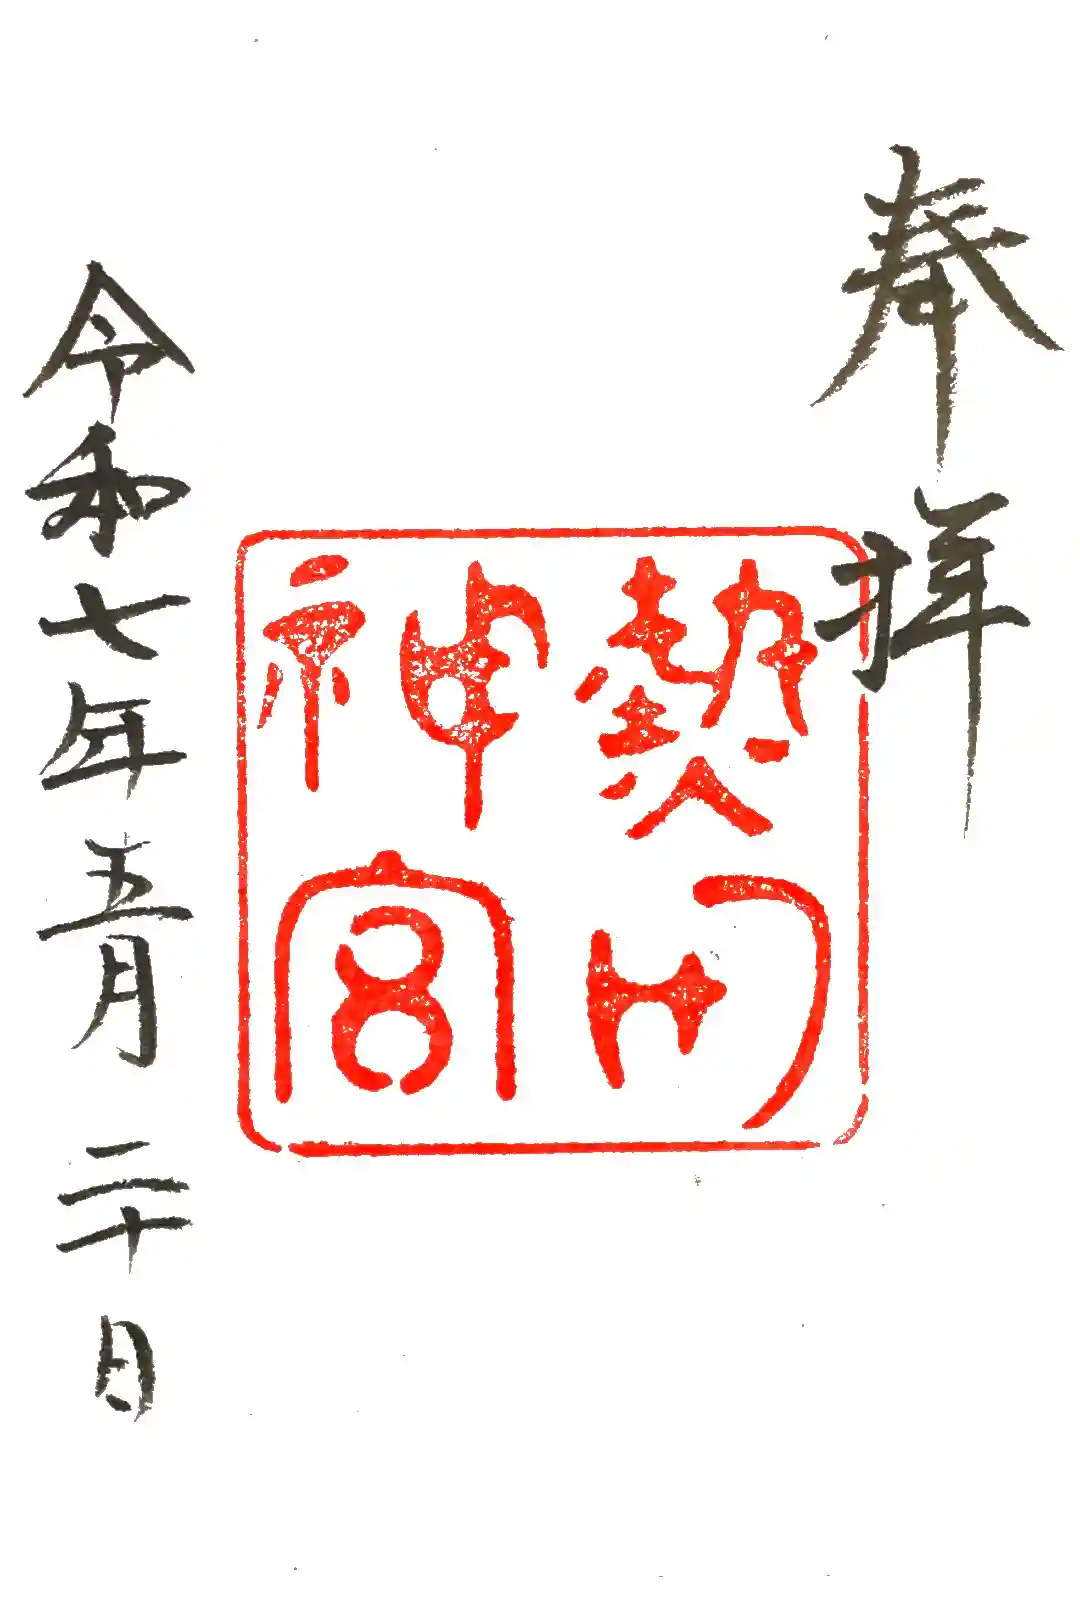 奉拝
熱田
神宮
令和七年五月二十日